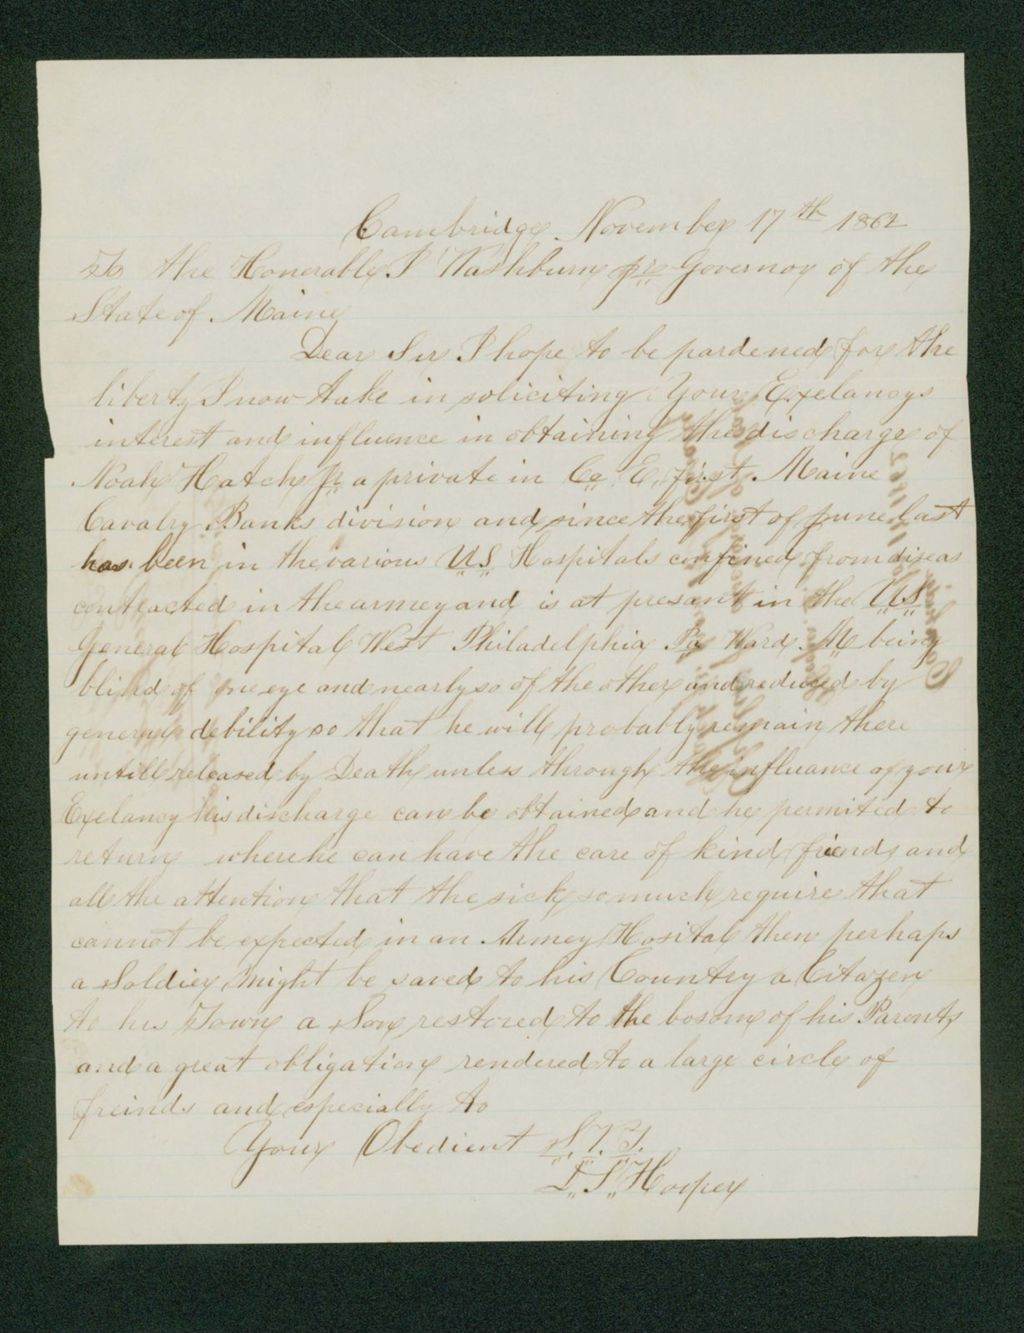 Cambridge November 17th 1862
To the Honerable I Washburn jr Governor of the
State of Maine
Dear Sir I hope to be pardened for the
liberty I now take in soliciting Your Exelancys
interest and influence in obtaining the discharge of
Noah Hatch Jr a private in Co E, first Maine
Cavalry Banks division and since the first of June last
has been in the various U.S. Hospitals confined from diseas
contracted in the armey and is at present in the U.S.
General Hospital West Philadelphia Pa Ward M being
blind of one eye and nearly so of the other and reduced by
general debility so that he will probably remain there
untill released by Death unless through the influance of your
Exelancy his discharge can be obtained and he permited to
return where he can have the care of kind friends and
all the attention that the sick so much require that
cannot be expected in an Armey Hosital then perhaps
a Soldier might be saved to his Country a Citazen
to his Town a Son restored to the bosom of his Parents
and a great obligation rendered to a large circle of
freinds and especially to
Your Obedient S.V.T.
Hooper